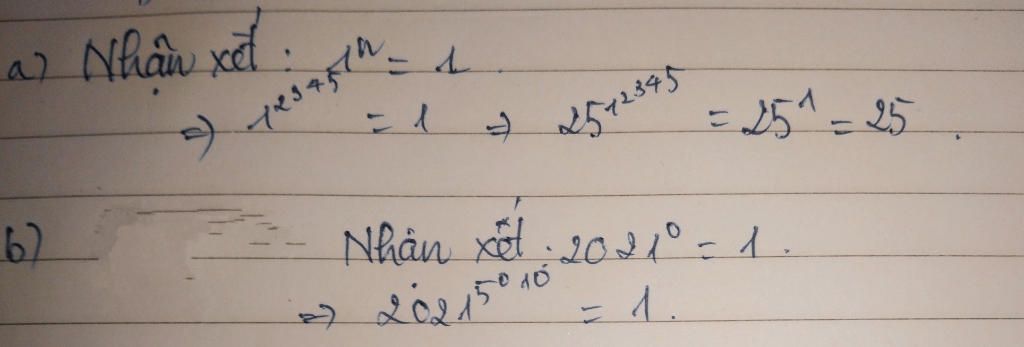 a) Nhận xét: 1ⁿ = 1.
⇒ 1^2^3^4^5 = 1 ⇒ 25^1^2^3^4^5 = 25¹ = 25.
b) Nhận xét: 2021⁰ = 1.
⇒ 2021^5^0^10 = 1.